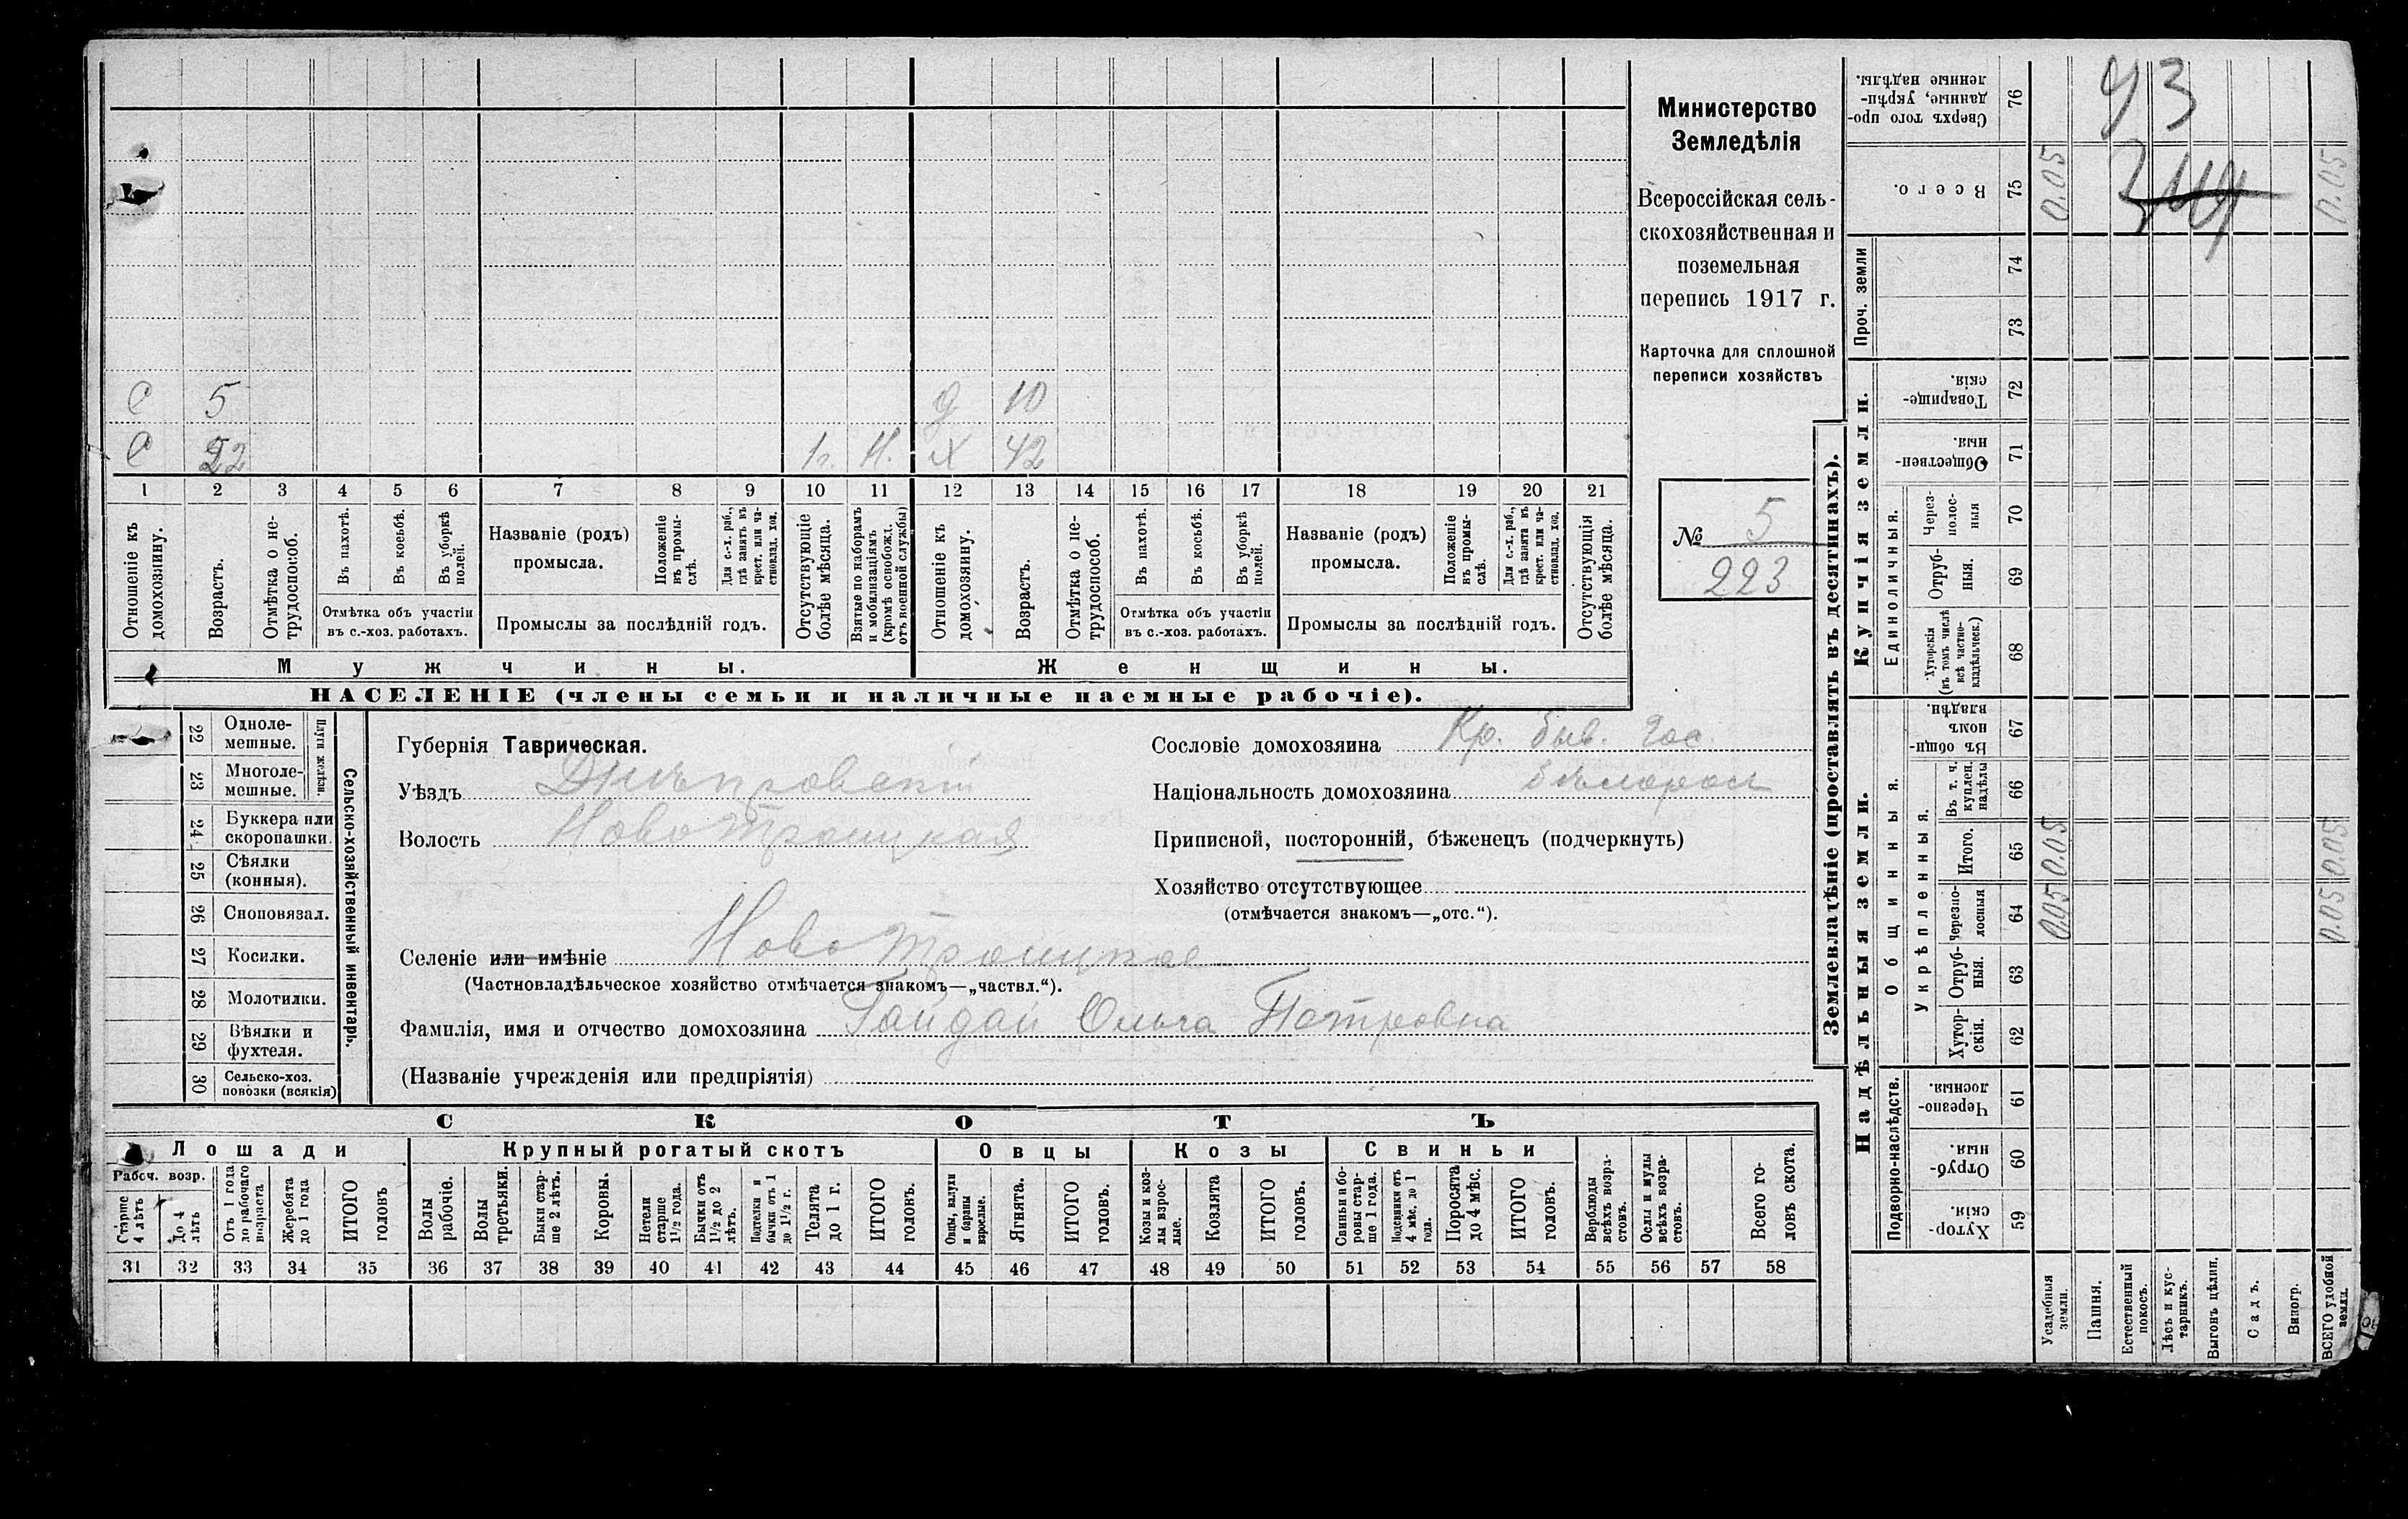 С 5 д 10
С 22 1 г. Н. Х 42
1 2 3 4 5 6 7 8 9 10 11 12 13 14 15 16 17 18 19 20 21
Отношеніе къ домохозяину.
Возрастъ.
Отмѣтка о не-
трудоспособ.
Въ пахотѣ.
Въ косьбѣ.
Въ уборкѣ
полей.
Отмѣтка объ участіи
въ с.-хоз. работахъ.
Названіе (родъ)
промысла.
Положеніе
въ промы-
слѣ.
Для с.-х. раб.,
гдѣ занятъ въ
крест. или ча-
стновлад. хоз.
Промыслы за послѣдній годъ.
Отсутствующіе
болѣе мѣсяца.
Взятые по наборамъ
и мобилизаціямъ
(кромѣ освобожд.
отъ военной службы)
Отношеніе къ
домохозяину.
Возрастъ.
Отмѣтка о не-
трудоспособ.
Въ пахотѣ.
Въ косьбѣ.
Въ уборкѣ
полей.
Отмѣтка объ участіи
въ с.-хоз. работахъ.
Названіе (родъ)
промысла.
Положеніе
въ промы-
слѣ.
Для с.-х. раб.,
гдѣ занята въ
крест. или ча-
стновлад. хоз.
Промыслы за послѣдній годъ.
Отсутствующія
болѣе мѣсяца.
Мужчины.
Женщины.
НАСЕЛЕНІЕ (члены семьи и наличные наемные рабочіе).
Министерство
Земледѣлія
Всероссійская сель-
скохозяйственная и
поземельная
перепись 1917 г.
Карточка для сплошной
переписи хозяйствъ
№ 5
223
22 Одноле-
мешные.
23 Многоле-
мешные.
Плуги желѣзн.
24 Буккера или
скоропашки.
25 Сѣялки
(конныя).
26 Сноповязал.
27 Косилки.
28 Молотилки.
29 Вѣялки и
фухтеля.
30 Сельско-хоз.
повозки (всякія)
Сельско-хозяйственный инвентарь.
Губернія Таврическая.
Уѣздъ Днѣпровскій
Волость Новотроицкая
Сословіе домохозяина Кр. быв. Гос.
Національность домохозяина бѣлорос
Приписной, посторонній, бѣженецъ (подчеркнуть)
Хозяйство отсутствующее
(отмѣчается знакомъ—„отс.“).
Селеніе или имѣніе Новотроицкое
(Частновладѣльческое хозяйство отмѣчается знакомъ—„частвл.“).
Фамилія, имя и отчество домохозяина Гайдай Ольга Петровна
(Названіе учрежденія или предпріятія)
СКОТЪ
Лошади
Крупный рогатый скотъ
Овцы
Козы
Свиньи
Рабоч. возр.
Старше
4 лѣтъ
До 4
лѣтъ
Отъ 1 года
до рабочаго
возраста
Жеребята
до 1 года
ИТОГО
головъ
Волы
рабочіе.
Волы
третьяки.
Быки стар-
ше 2 лѣтъ.
Коровы.
Нетели
старше
1 1/2 года.
Бычки отъ
1 1/2 до 2
лѣтъ.
Подтелки и
бычки отъ 1
до 1 1/2 г.
Телята
до 1 г.
ИТОГО
головъ.
Овцы, валухи
и бараны
взрослые.
Ягнята.
ИТОГО
головъ.
Козы и коз-
лы взрос-
лые.
Козлята
ИТОГО
головъ.
Свиньи и бо-
ровы стар-
ше 1 года.
Подсвинки отъ
4 мѣс. до 1
года.
Поросята
до 4 мѣс.
ИТОГО
головъ.
Верблюды
всѣхъ возра-
стовъ.
Ослы и мулы
всѣхъ возра-
стовъ.
Всего го-
ловъ скота.
31 32 33 34 35 36 37 38 39 40 41 42 43 44 45 46 47 48 49 50 51 52 53 54 55 56 57 58
Землевладѣніе (проставлять въ десятинахъ).
Купчія земли.
Надѣльныя земли.
Сверхъ того про-
данные, укрѣп-
ленные надѣлы.
76
43
Всего.
75
0.05
0.05
Проч. земли
74
73
Товарище-
скія.
72
Обществен-
ныя.
71
Единоличныя.
Через-
полос-
ныя
70
Отруб-
ныя.
69
Хуторскія
(въ томъ числѣ
всѣ частно-
владѣльческ.)
68
Общинныя.
Въ общи-
номъ
владѣн.
67
Укрѣпленныя.
Въ т. ч.
куплен.
надѣлы
66
Итого.
65
0.05
0.05
Черезпо-
лосныя
64
0.05
0.05
Отруб-
ныя.
63
Хутор-
скія.
62
Подворно-наслѣдств.
Черезпо-
лосныя.
61
Отруб-
ныя.
60
Хутор-
скія.
59
Усадебныя
земли.
Пашня.
Естественный
покосъ.
Лѣсъ и кус-
тарникъ.
Выгонъ цѣлин.
Садъ.
Виногр.
ВСЕГО удобной
земли.